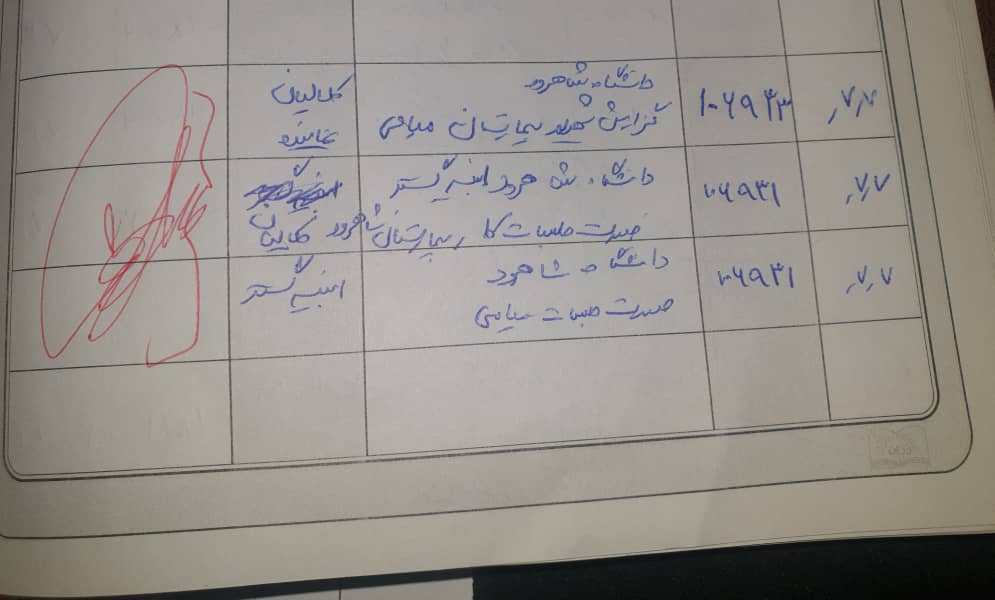 ۷٫۷٫
۱۰۶۹۳۳
دانشگاه شاهرود
گزارش بیمارستان میامی
کلالیان
نماینده
۷٫۷٫
۰۶۹۳۱
دانشگاه شاهرود ابنیه گستر
صورت جلسات بیمارستان شاهرود
کلالیان
۷٫۷٫
۰۶۹۳۱
دانشگاه شاهرود
صورت جلسات میامی
ابنیه گستر